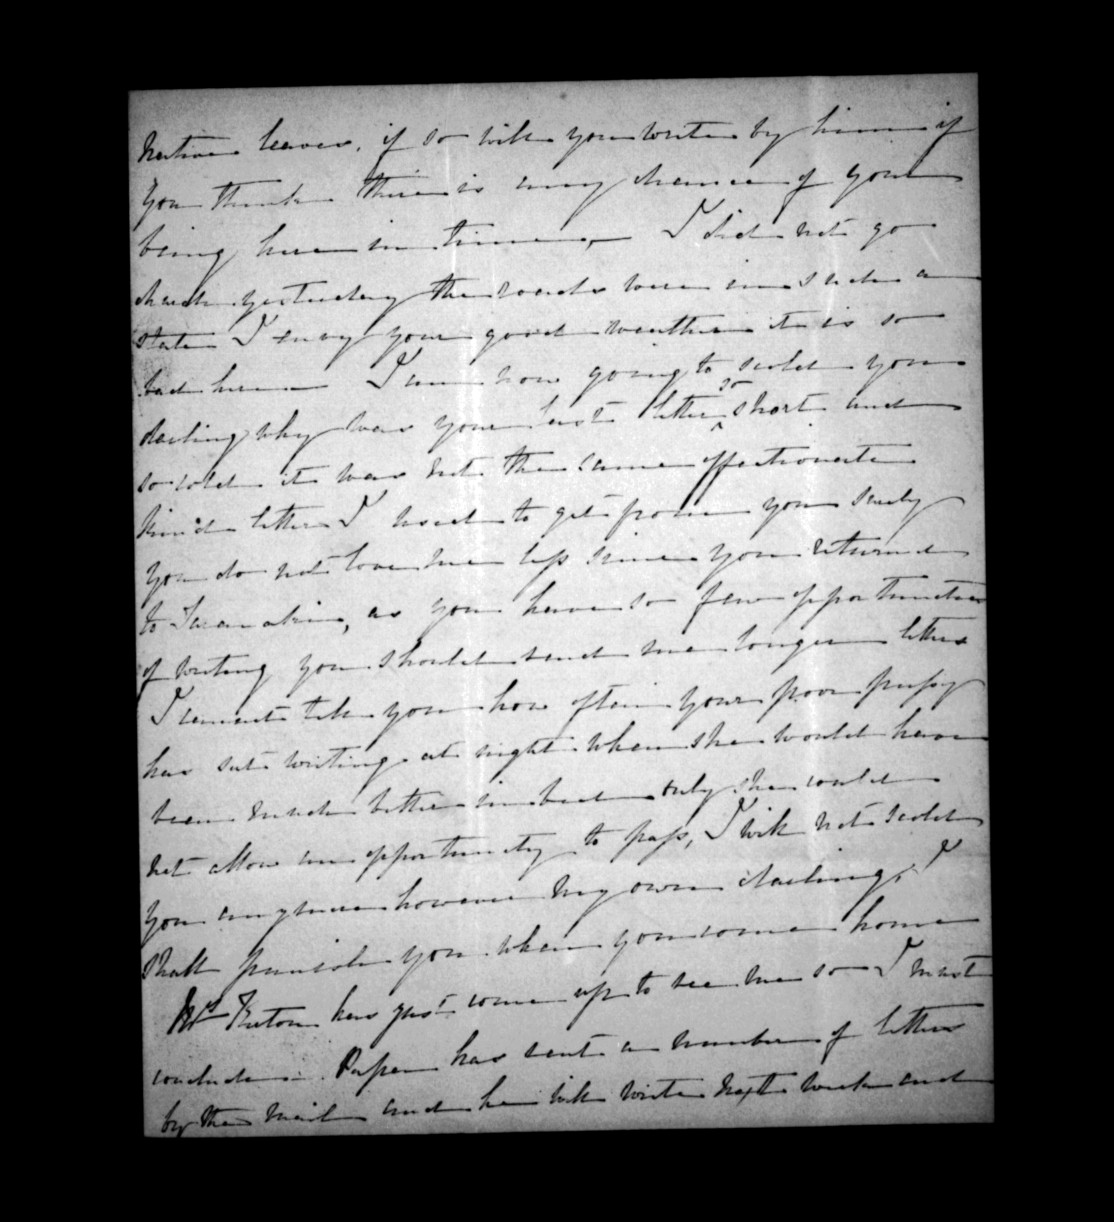 Native leaves, if so will you write by him if
you think there is any chance of your
being here in time, I did not go
church yesterday the roads were in such a
state I envy your good weather it is so
bad here I am now going to scold you
darling why was your last letter so short and
so cold it was not the same affectionate
kind letter I used to get from you surely
you do not love me less since you returned
to Taranaki, as you have so few opportunities
of writing you should send me longer letters
I cannot tell you how often your poor pussy
has sat writing at night when she would have
been much better in bed only she would
not allow an opportunity to pass, I will not scold
you anymore however my own darling, I
shall punish you when you come home
Mrs has just come up to see me so I must
conclude. Papa has sent a number of letters
by the mail and he will write next week and